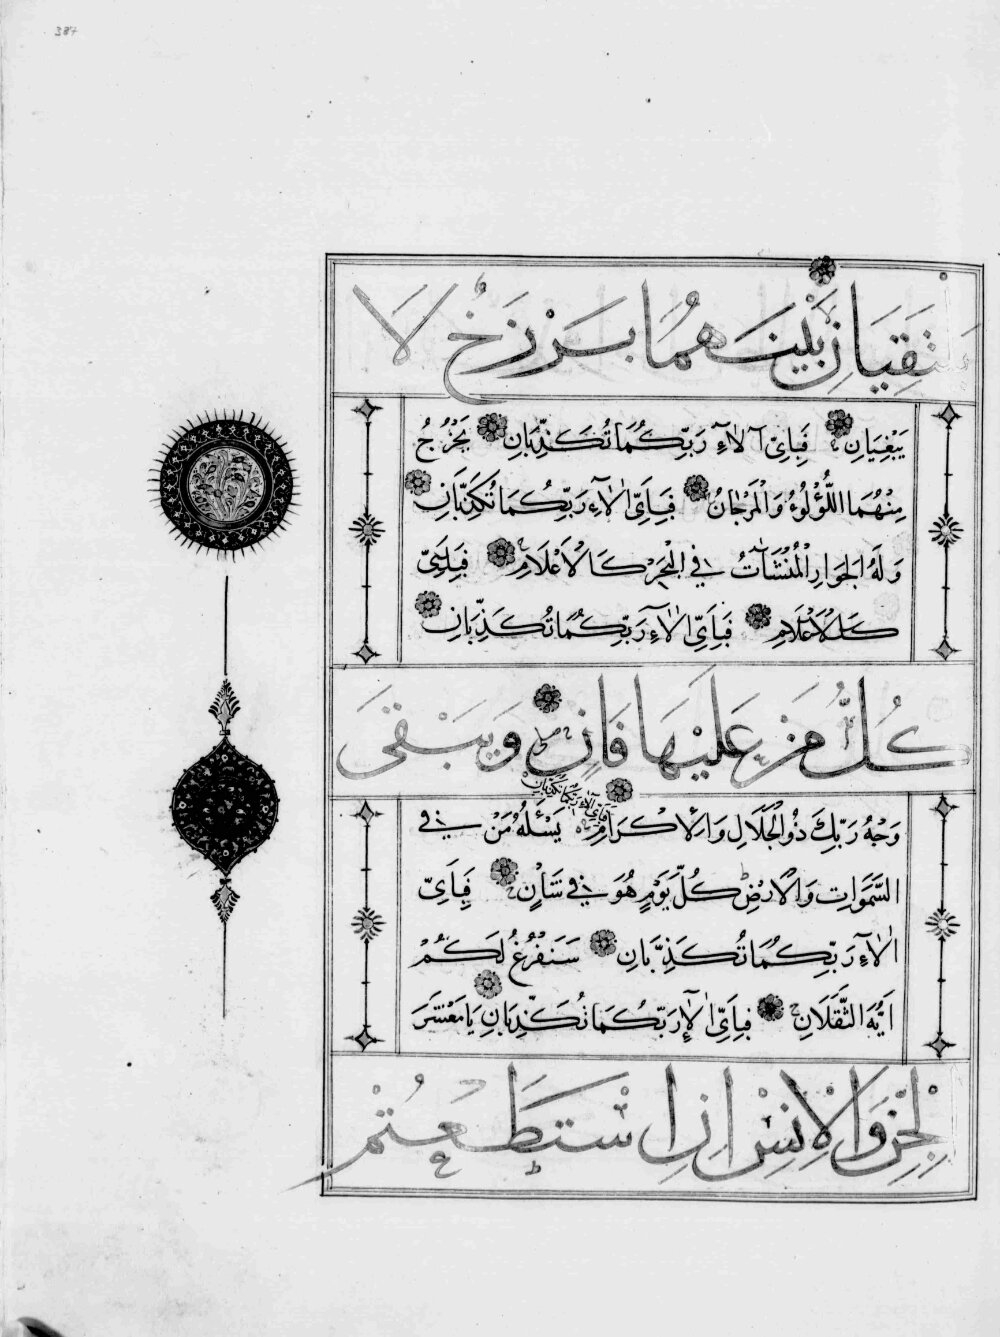 387
يَلْتَقِيَانِ بَيْنَهُمَا بَرْزَخٌ لَا
يَبْغِيَانِ فَبِاَىِّ آلَاءِ رَبِّكُمَا تُكَذِّبَانِ يَخْرُجُ
مِنْهُمَا اللُّؤْلُؤُ وَالْمَرْجَانُ فَبِاَىِّ اٰلَاءِ رَبِّكُمَا تُكَذِّبَانِ
وَلَهُ الْجَوَارِ الْمُنْشَآتُ فِي الْبَحْرِ كَالْاَعْلَامِ فَبِاَىِّ
كَالْاَعْلَامِ فَبِاَىِّ اٰلَاءِ رَبِّكُمَا تُكَذِّبَانِ
كُلُّ مَنْ عَلَيْهَا فَانٍ وَيَبْقَى
فَبِاَىِّ آلَاءِ رَبِّكُمَا تُكَذِّبَانِ
وَجْهُ رَبِّكَ ذُو الْجَلَالِ وَالْاِكْرَامِ يَسْئَلُهُ مَنْ فِي
السَّمَوَاتِ وَالْاَرْضِ كُلَّ يَوْمٍ هُوَ فِي شَاْنٍ فَبِاَىِّ
اٰلَاءِ رَبِّكُمَا تُكَذِّبَانِ سَنَفْرُغُ لَكُمْ
اَيُّهَ الثَّقَلَانِ فَبِاَىِّ اٰلَاءِ رَبِّكُمَا تُكَذِّبَانِ يَا مَعْشَرَ
الْجِنِّ وَالْاِنْسِ اِنِ اسْتَطَعْتُمْ